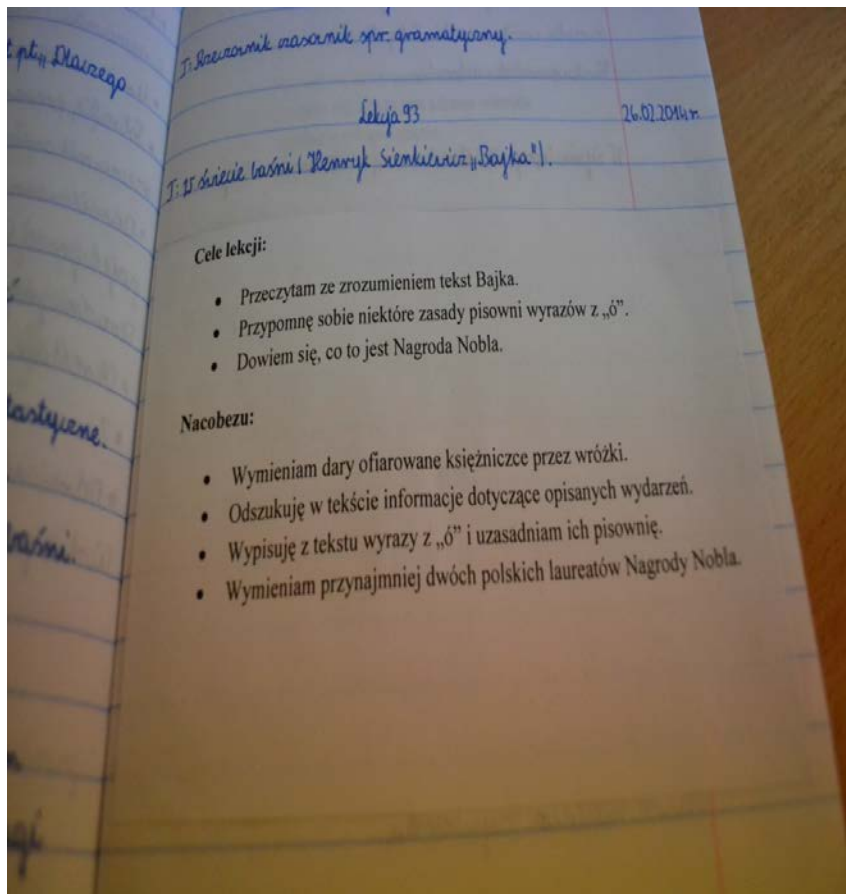 t pt. „Dlaczego
T: Rzeczownik czasownik spr. gramatyczny.
Lekcja 93 26.02.2014 r.
T: W świecie baśni (Henryk Sienkiewicz „Bajka").
Cele lekcji:
• Przeczytam ze zrozumieniem tekst Bajka.
• Przypomnę sobie niektóre zasady pisowni wyrazów z „ó”.
• Dowiem się, co to jest Nagroda Nobla.
tastyczne.
Nacobezu:
• Wymieniam dary ofiarowane księżniczce przez wróżki.
• Odszukuję w tekście informacje dotyczące opisanych wydarzeń.
• Wypisuję z tekstu wyrazy z „ó” i uzasadniam ich pisownię.
• Wymieniam przynajmniej dwóch polskich laureatów Nagrody Nobla.
baśni.